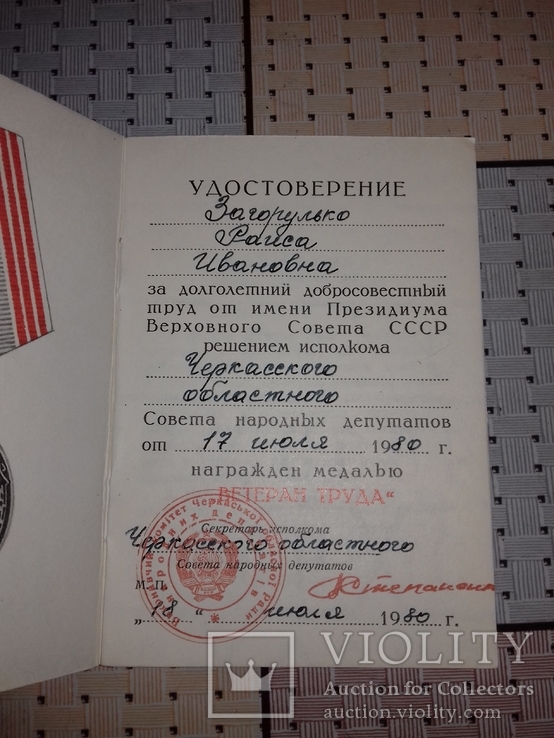 УДОСТОВЕРЕНИЕ
Загорулько
Раиса
Ивановна
за долголетний добросовестный
труд от имени Президиума
Верховного Совета СССР
решением исполкома
Черкасского
областного
Совета народных депутатов
от 17 июля 1980 г.
награжден медалью
ВЕТЕРАН ТРУДА“
Секретарь исполкома
Черкасского областного
Совета народных депутатов
М. П.
„18“ июля 1980 г.
VIOLITY
Auction for Collectors
auction.violity.com